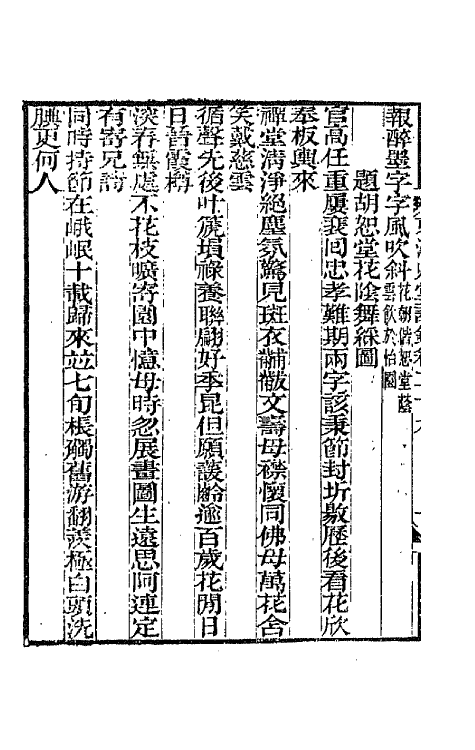 報醉墨字字風吹斜花朝偕恕堂蔭雲飲於怡園
題胡恕堂花陰舞綵圖
官高任重屢裴囘忠孝難期兩字該秉節封圻敭歷後看花欣
奉板輿來
禪堂清淨絕塵氛驚見斑衣黼黻文壽母襟懷同佛母萬花含
笑戴慈雲
循聲先後叶篪塤祿養聯翩好季昆但願護齡逾百歲花開日
日晉霞樽
淡春無處不花枝曠寄園中憶母時忽展畫圖生遠思阿連定
有寄兄詩
同時持節在峨岷十載歸來竝七旬棖觸舊游翻羨極白頭洗
腆更何人